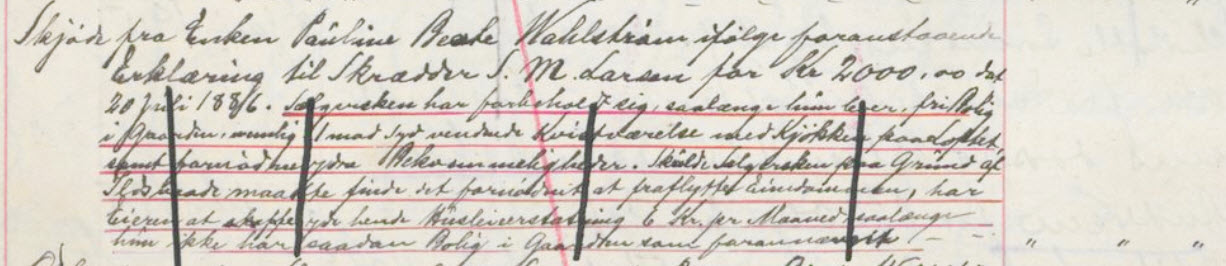 Skjøde fra Enken Pauline Beate Wahlstrøm ifølge foranstaaende
Erklæring til Skrædder S. M. Larsen for Kr 2000.00 dat
20 Juli 1886. Sælgersken har forbeholdt sig, saalænge hun lever, fri Bolig
i Gaarden, nemlig 1 mod Syd vendende Kvistværelse med Kjøkken paa Loftet
samt fornødne ydre Bekvemmeligheder. Skulde Sælgersken paa Grund af
Ildsvaade maatte finde det fornødent at fraflytte Eiendommen, har
Eieren at yde hende Husleieerstatning 6 Kr. pr Maaned, saalænge
hun ikke har saadan Bolig i Gaarden som forannævnt — —
" " "